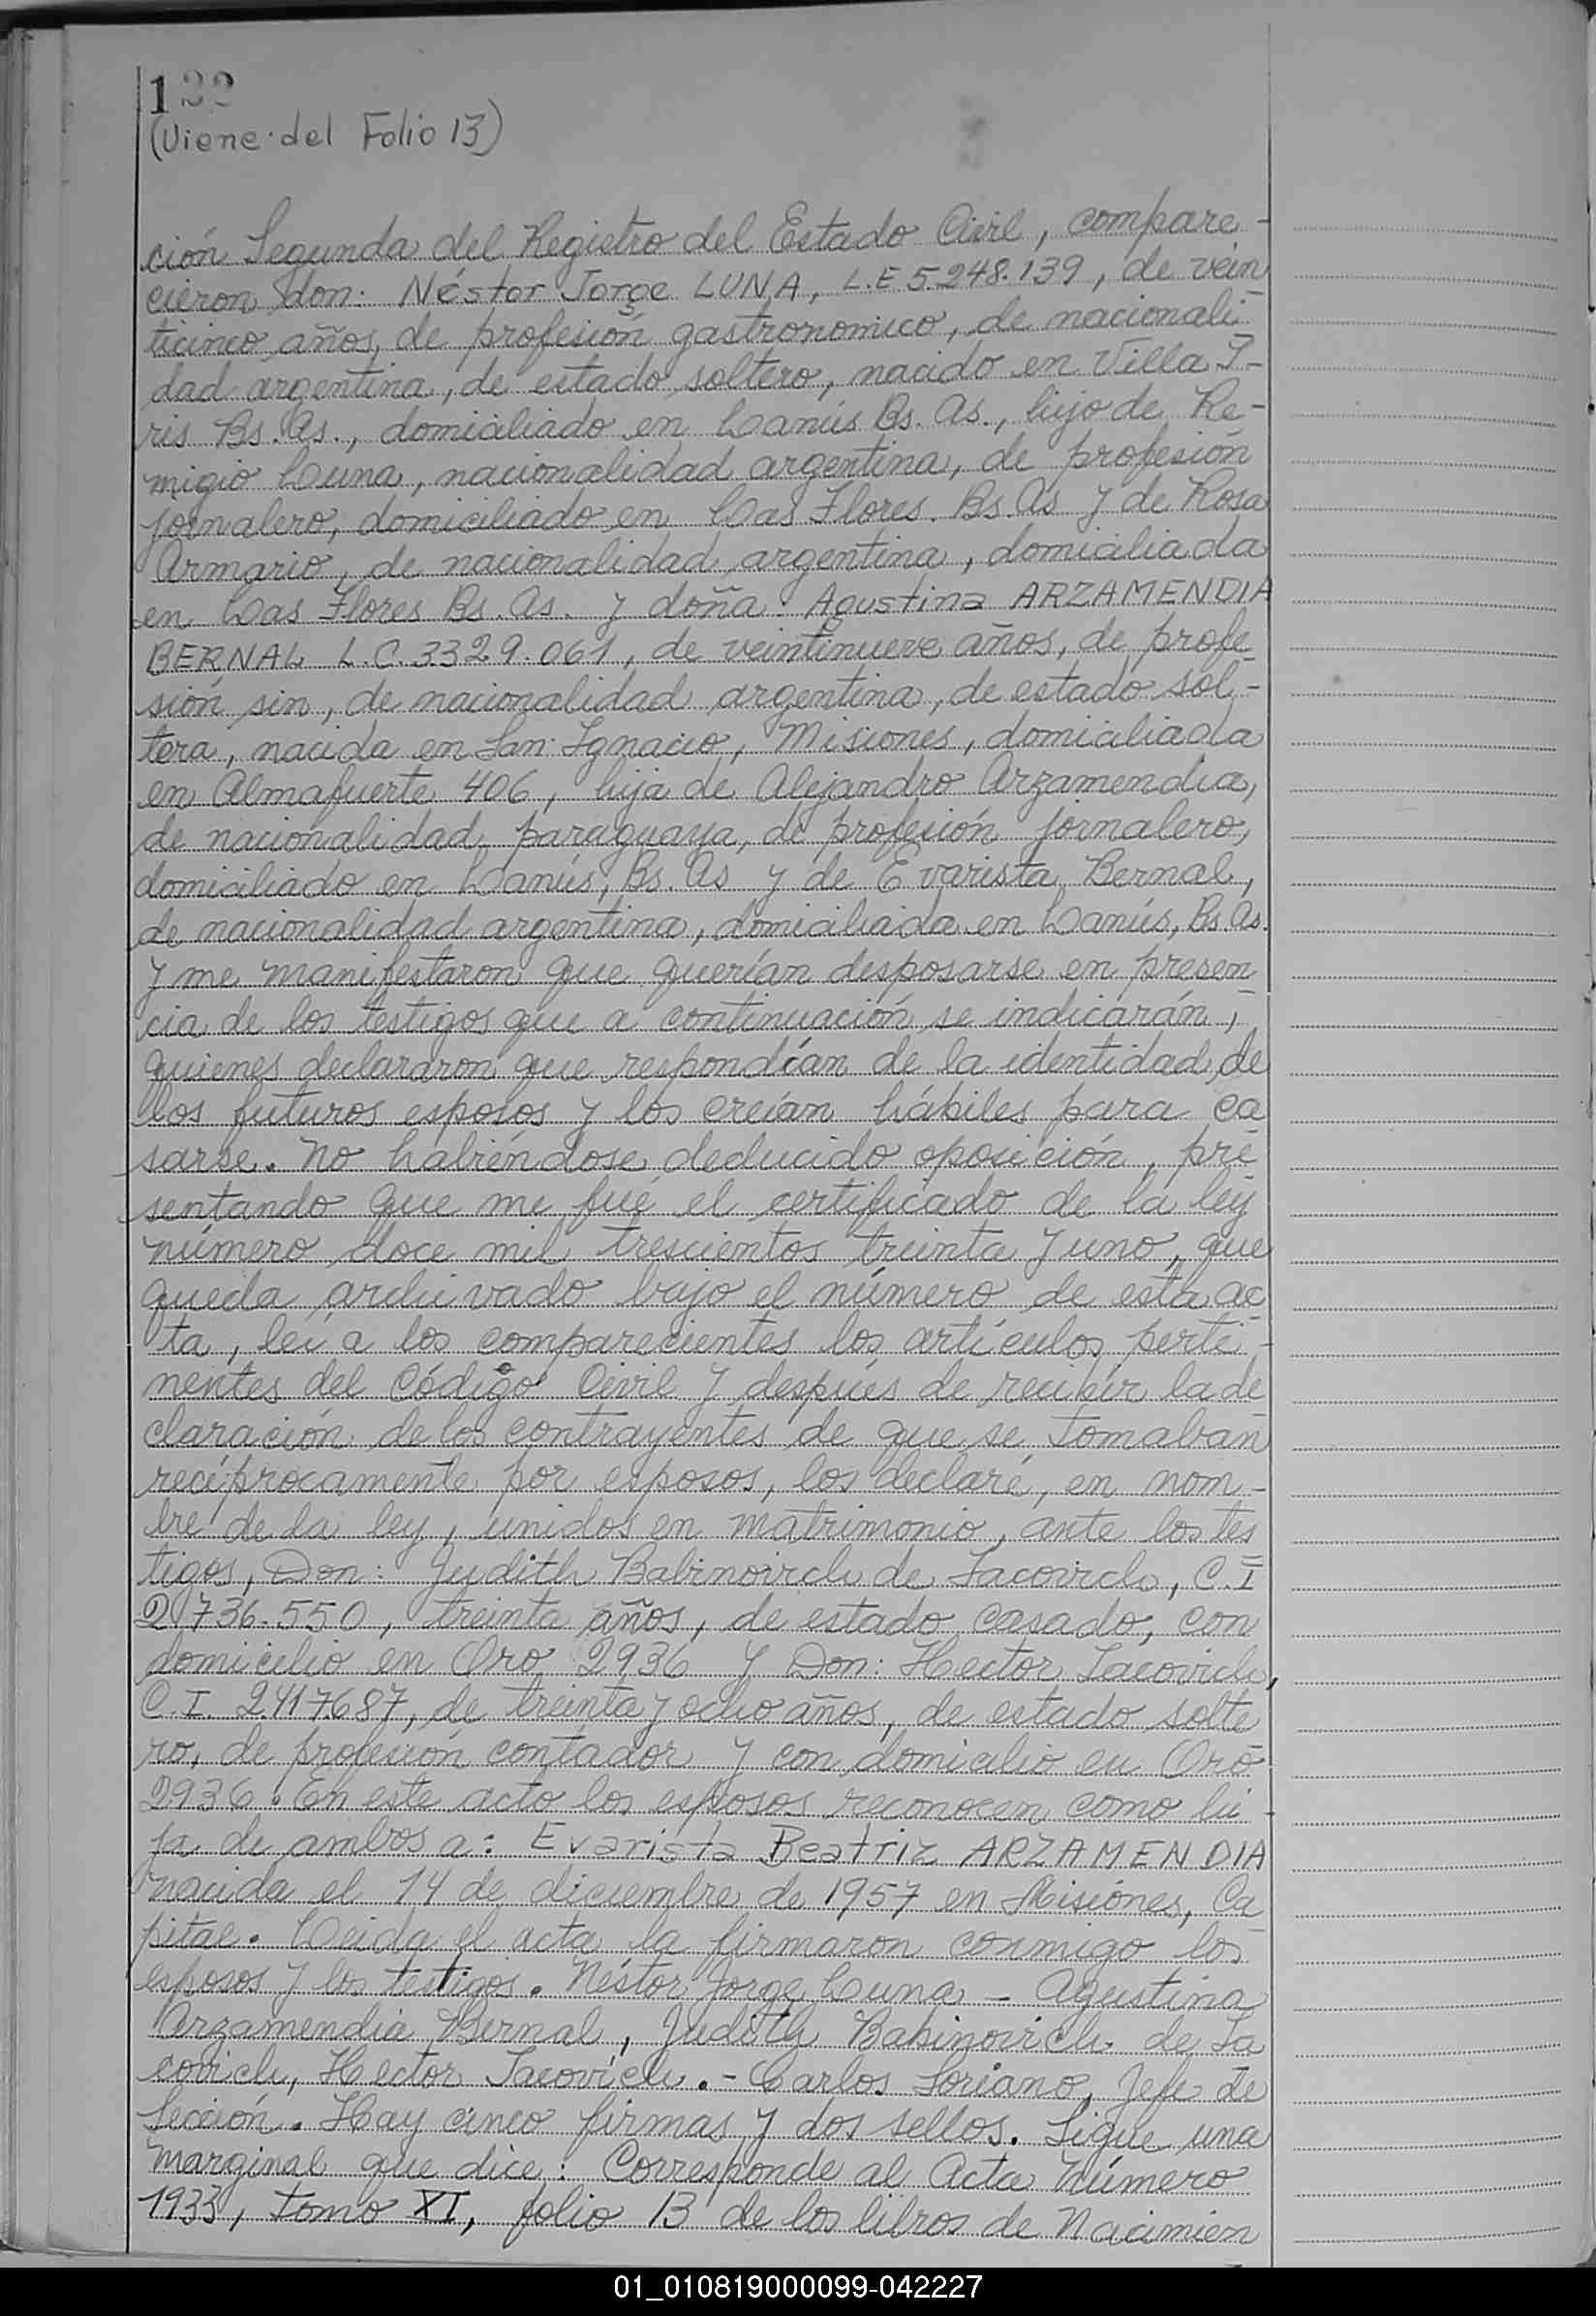 132
(Viene del Folio 13)
ción Segunda del Registro del Estado Civil, compare-
cieron don: Néstor Jorge LUNA, L.E 5.248.139, de vein
ticinco años, de profesión gastronomico, de nacionali-
dad argentina, de estado soltero, nacido en Villa I-
ris Bs. As., domiciliado en Lanús Bs. As., hijo de Re-
migio Luna, nacionalidad argentina, de profesión
jornalero, domiciliado en Las Flores. Bs. As y de Rosa
Armario, de nacionalidad argentina, domiciliada
en Las Flores Bs. As. y doña: Agustina ARZAMENDIA
BERNAL L.C. 3329.061, de veintinueve años, de profe
sión sin, de nacionalidad argentina, de estado sol-
tera, nacida en San Ignacio, Misiones, domiciliada
en Almafuerte 406, hija de Alejandro Arzamendia,
de nacionalidad paraguaya, de profesión jornalero,
domiciliado en Lanús, Bs. As y de Evarista Bernal,
de nacionalidad argentina, domiciliada en Lanús, Bs. As.
y me manifestaron que querían desposarse en presen
cia de los testigos que a continuación se indicarán,
quienes declararon que respondían de la identidad de
los futuros esposos y los creían hábiles para ca
sarse. No habiéndose deducido oposición, pre
sentando que me fué el certificado de la ley
número doce mil trescientos treinta y uno, que
queda archivado bajo el número de esta ac
ta, leí a los comparecientes los artículos perti-
nentes del Código Civil y después de recibir la de
claración de los contrayentes de que se tomaban
recíprocamente por esposos, los declaré, en nom-
bre de la ley, unidos en matrimonio, ante los tes
tigos, Don: Judith Babinovich de Iacovich, C.I
2.736.550, treinta años, de estado casado, con
domicilio en Oro 2936 y Don: Hector Iacovich,
C.I. 2417687, de treinta y ocho años, de estado solte
ro, de profesión contador y con domicilio en Oro
2936. En este acto los esposos reconocen como hi-
ja de ambos a: Evarista Beatriz ARZAMENDIA
nacida el 14 de diciembre de 1957 en Misiónes, Ca
pital. Leida el acta la firmaron conmigo los
esposos y los testigos. Néstor Jorge Luna - Agustina
Arzamendia Bernal, Judith Babinovich de Ia
covich, Hector Iacovich. - Carlos Soriano, Jefe de
Sección. Hay cinco firmas y dos sellos. Sigue una
marginal que dice: Corresponde al Acta Número
1933, tomo XI, folio 13 de los libros de Nacimien
01_010819000099-042227